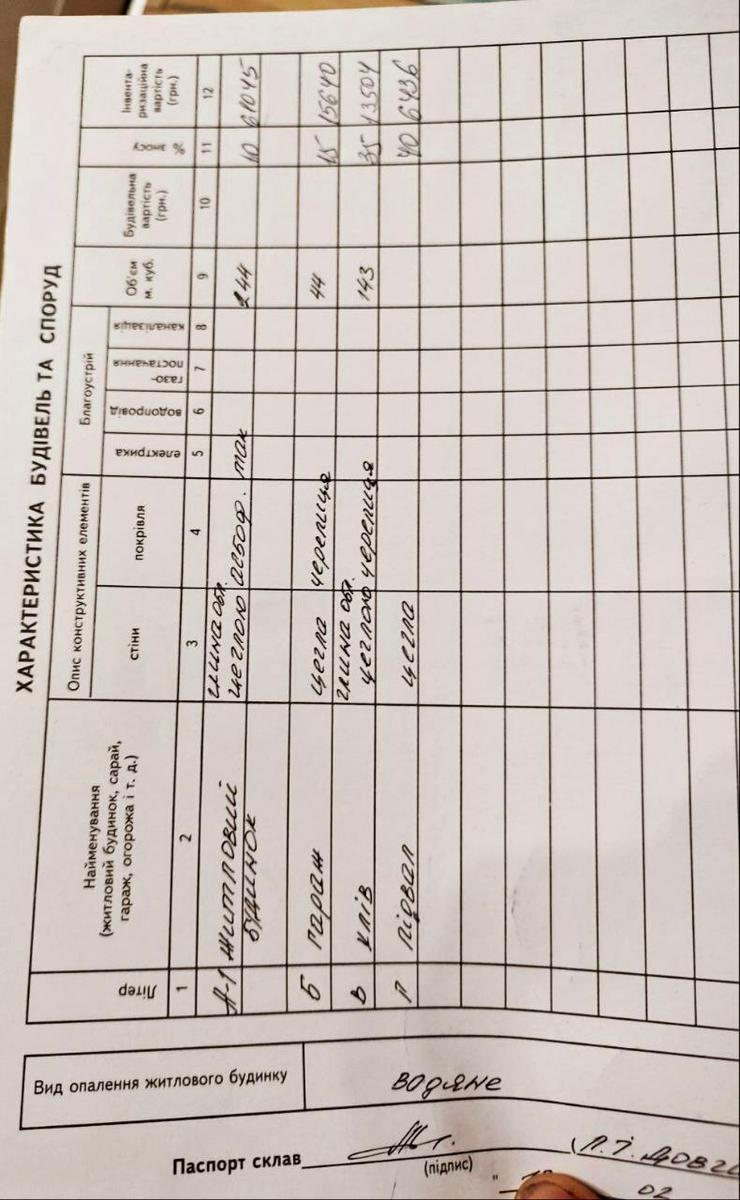 ХАРАКТЕРИСТИКА БУДІВЕЛЬ ТА СПОРУД
Літер
Найменування
(житловий будинок, сарай,
гараж, огорожа і т. д.)
Опис конструктивних елементів
стіни
покрівля
Благоустрій
електрика
водопровід
газо-
постачання
каналізація
Об'єм
м. куб.
Будівельна
вартість
(грн.)
% зносу
Інвента-
ризаційна
вартість
(грн.)
1 2 3 4 5 6 7 8 9 10 11 12
А-1 житловий глина обл.
будинок цеглою асбоф. так 244 10 61045
Б гараж цегла черепиця 44 15 15640
глина обл.
В хлів цеглою черепиця 143 35 13504
П підвал цегла 40 6436
Вид опалення житлового будинку водяне
Паспорт склав
(підпис)
02